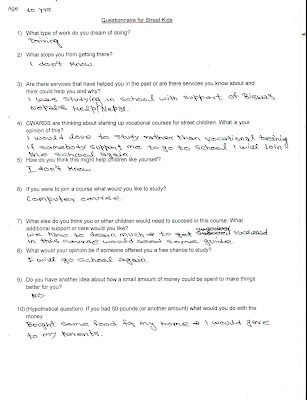 Age: 10 yrs.
Questionnaire for Street Kids
1) What type of work do you dream of doing?
Driving
2) What stops you from getting there?
I don't know.
3) Are there services that have helped you in the past or are there services you know about and
think could help you and why?
I was studying in school with support of Biswas
Nepal & Help Nepal.
4) CWARDS are thinking about starting up vocational courses for street children. What is your
opinion of this?
I would love to study rather than vocational training
if somebody support me to go to school I will join
the school again.
5) How do you think this might help children like yourself?
I don't know
6) If you were to join a course what would you like to study?
Computer course.
7) What else do you think you or other children would need to succeed in this course. What
additional support or care would you like?
we have to learn much & to get succeed
in this course would need some guide.
8) What would your opinion if someone offered you a free chance to study?
I will go school again.
9) Do you have another idea about how a small amount of money could be spent to make things
better for you?
NO.
10) (Hypothetical question). If you had 50 pounds (or another amount) what would you do with the
money
Bought some food for my home & I would gave
to my parents.